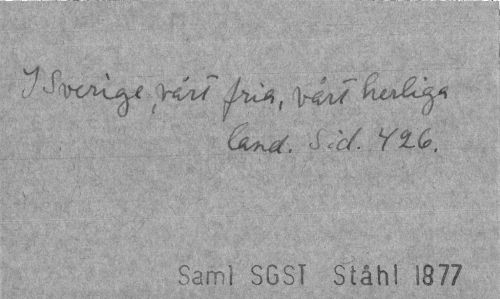 I Sverige, vårt fria, vårt herliga
land. Sid. 426.
Saml SGST Ståhl 1877